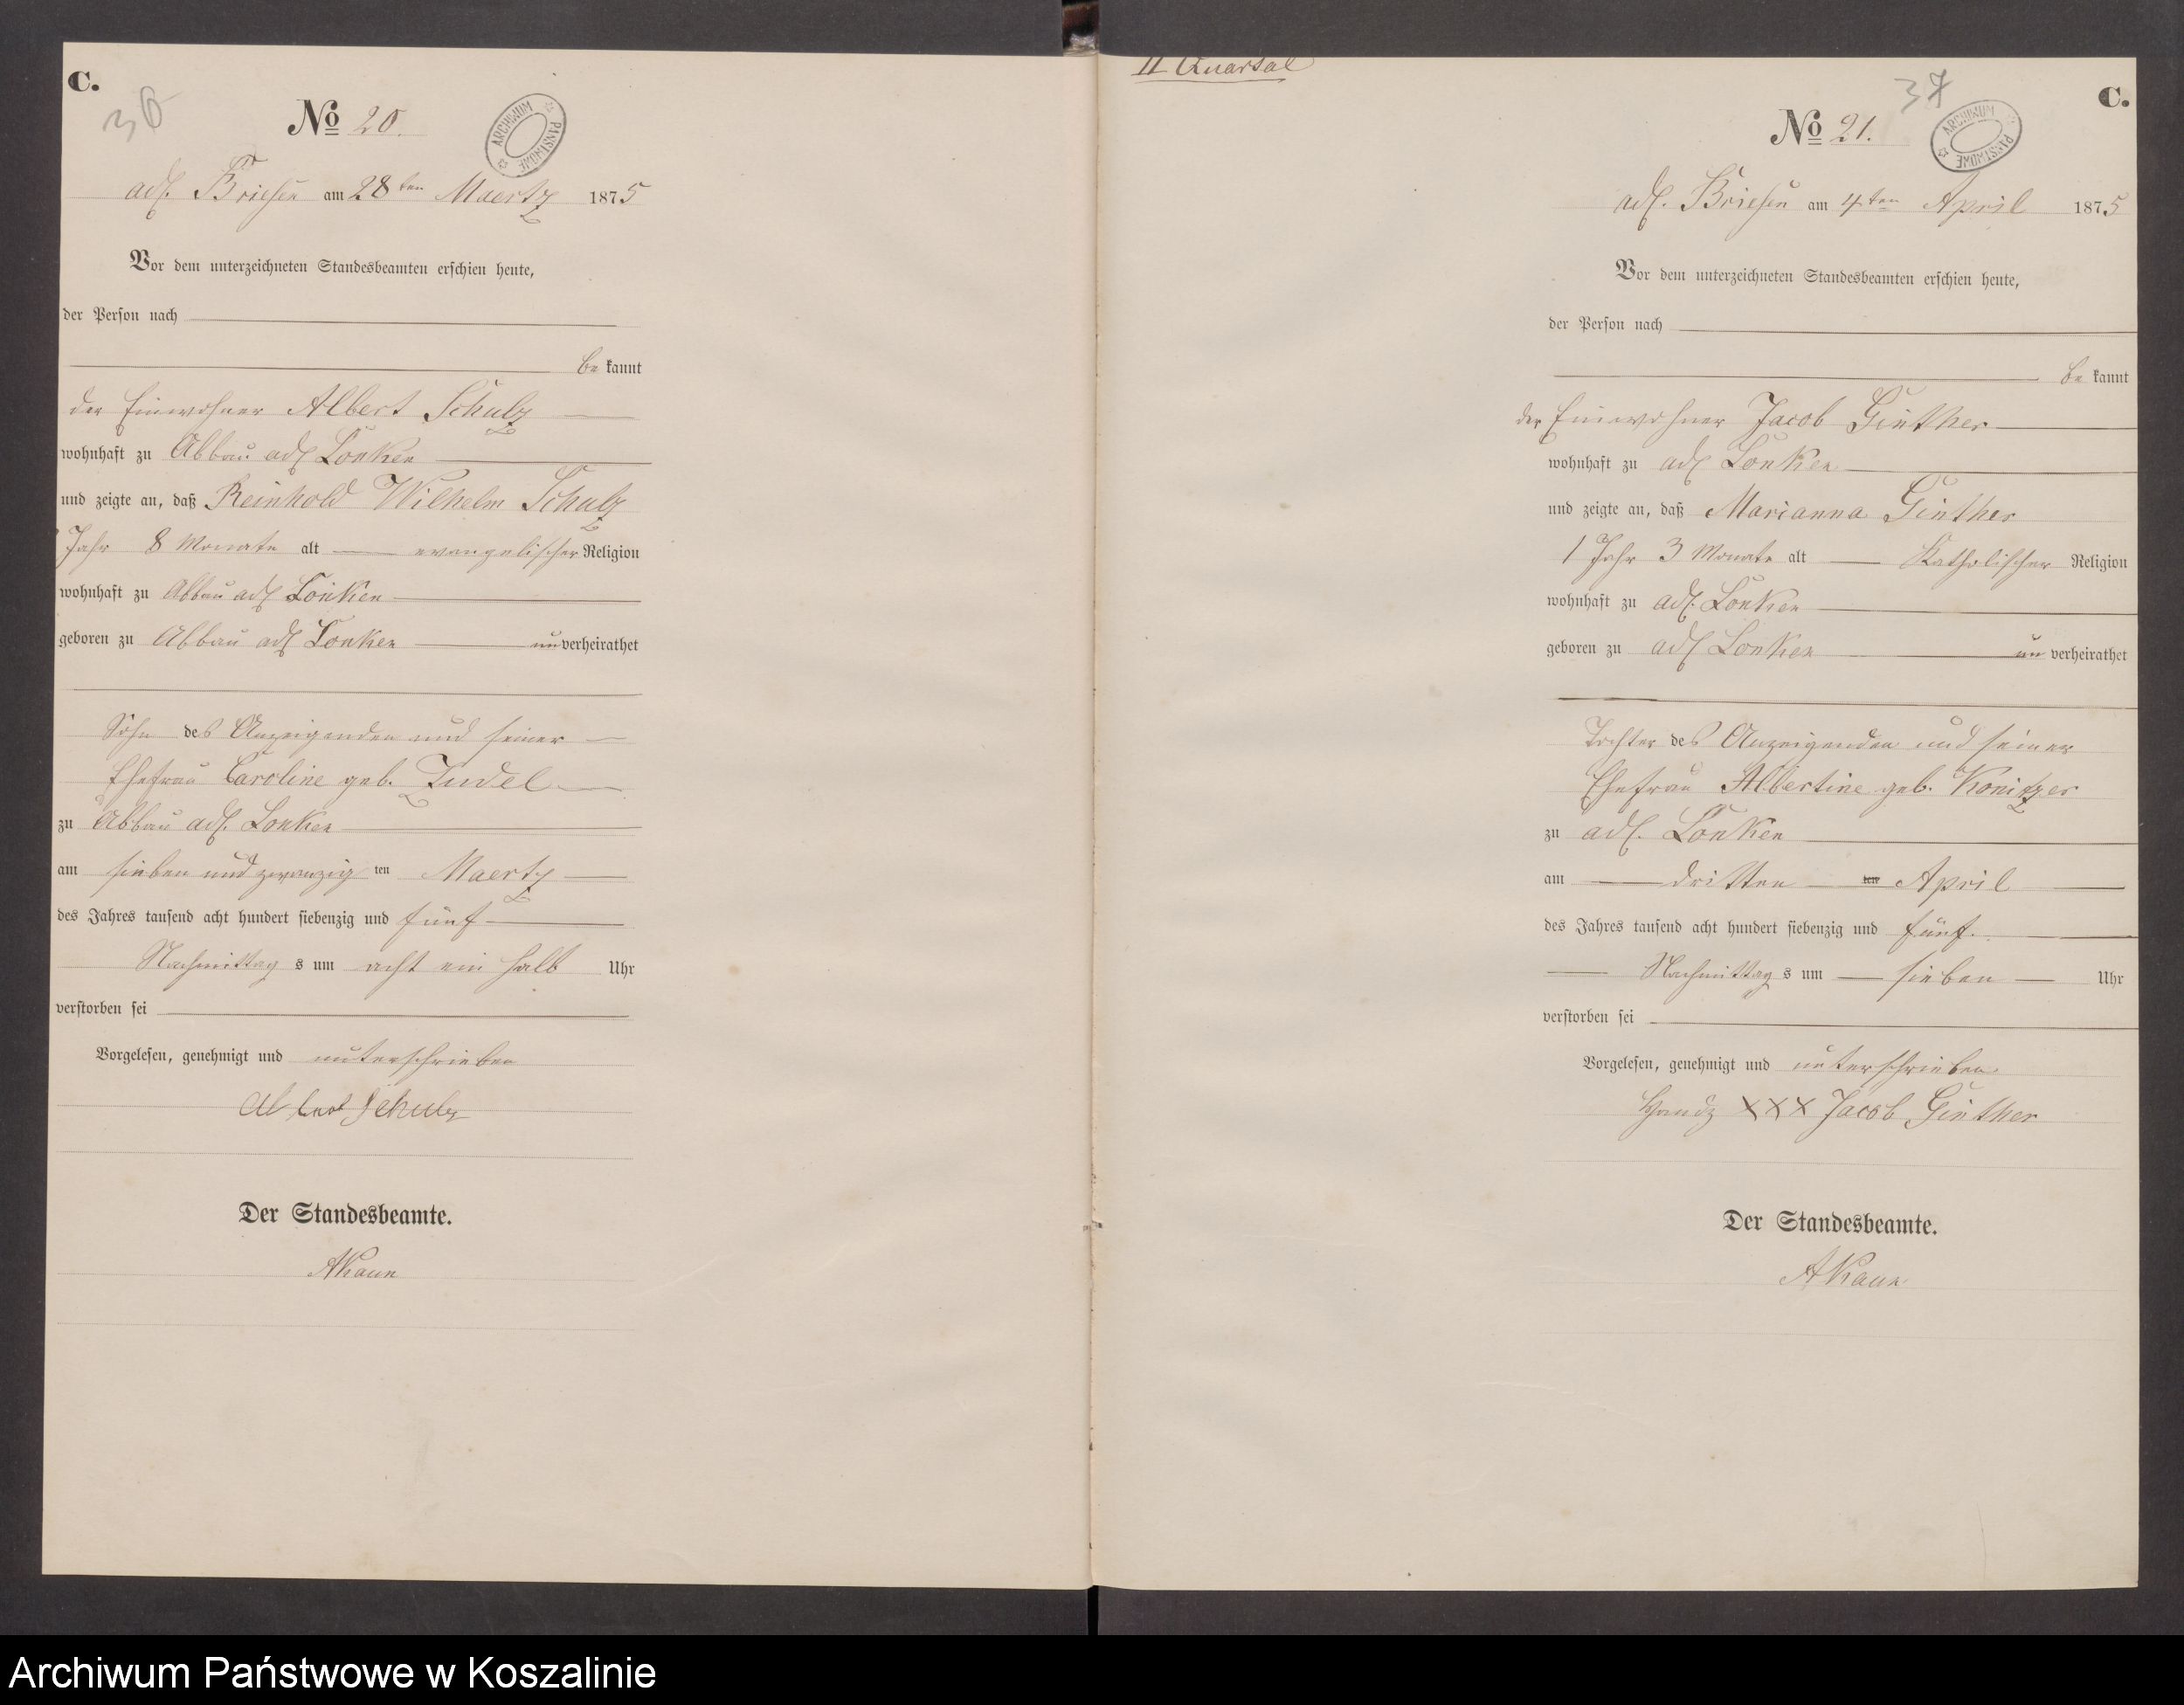 C.
36
No 20.
ARCHIWUM PAŃSTWOWE
adl. Briesen am 28ten Maertz 1875
Vor dem unterzeichneten Standesbeamten erschien heute,
der Person nach
be kannt
der Einwohner Albert Schulz
wohnhaft zu Abbau adl Lonken
und zeigte an, daß Reinhold Wilhelm Schulz
Jahr 8 Monate alt evangelischer Religion
wohnhaft zu Abbau adl Lonken
geboren zu Abbau adl Lonken unverheirathet
Sohn des Anzeigenden und seiner
Ehefrau Caroline geb. Zudel
zu Abbau adl. Lonken
am sieben und zwanzig ten Maertz
des Jahres tausend acht hundert siebenzig und fünf
Nachmittag s um acht ein halb Uhr
verstorben sei
Vorgelesen, genehmigt und unterschrieben
Albert Schulz
Der Standesbeamte.
AKaun
II Quartal
37
C.
No 21.
ARCHIWUM PAŃSTWOWE
adl. Briesen am 4ten April 1875
Vor dem unterzeichneten Standesbeamten erschien heute,
der Person nach
be kannt
der Einwohner Jacob Ginther
wohnhaft zu adl Lonken
und zeigte an, daß Marianna Ginther
1 Jahr 3 Monate alt Katholischer Religion
wohnhaft zu adl. Lonken
geboren zu adl Lonken un verheirathet
Tochter des Anzeigenden und seiner
Ehefrau Albertine geb. Konitzer
zu adl. Lonken
am dritten ten April
des Jahres tausend acht hundert siebenzig und fünf.
Nachmittag s um sieben Uhr
verstorben sei
Vorgelesen, genehmigt und unterschrieben
Handz XXX Jacob Ginther
Der Standesbeamte.
AKaun
Archiwum Państwowe w Koszalinie